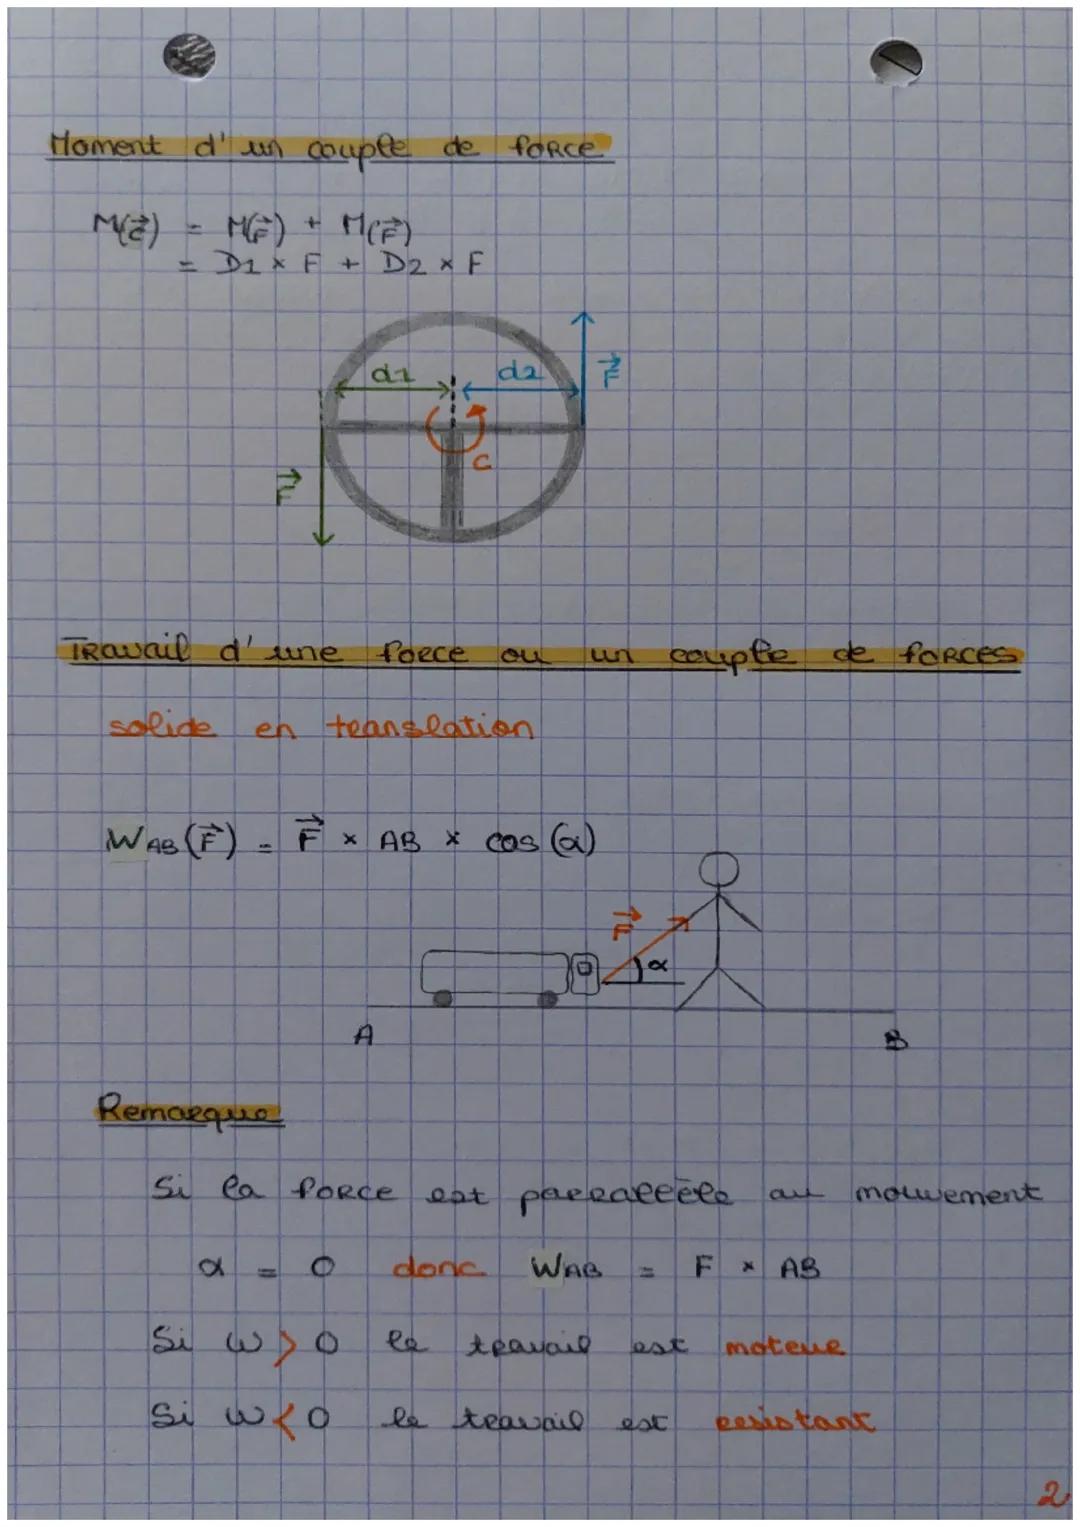 Moment d'un couple de force
M(C⃗) = M(F⃗) + M(F⃗)
= D1 × F + D2 × F
d1 d2 F⃗
C
F⃗
Travail d'une force ou un couple de forces
solide en translation
WAB (F⃗) = F⃗ × AB × cos (α)
F⃗
α
A B
Remarque
Si la force est parralèële au mouvement
α = 0 donc WAB = F × AB
Si W > 0 le travail est moteur
Si W < 0 le travail est resistant
2